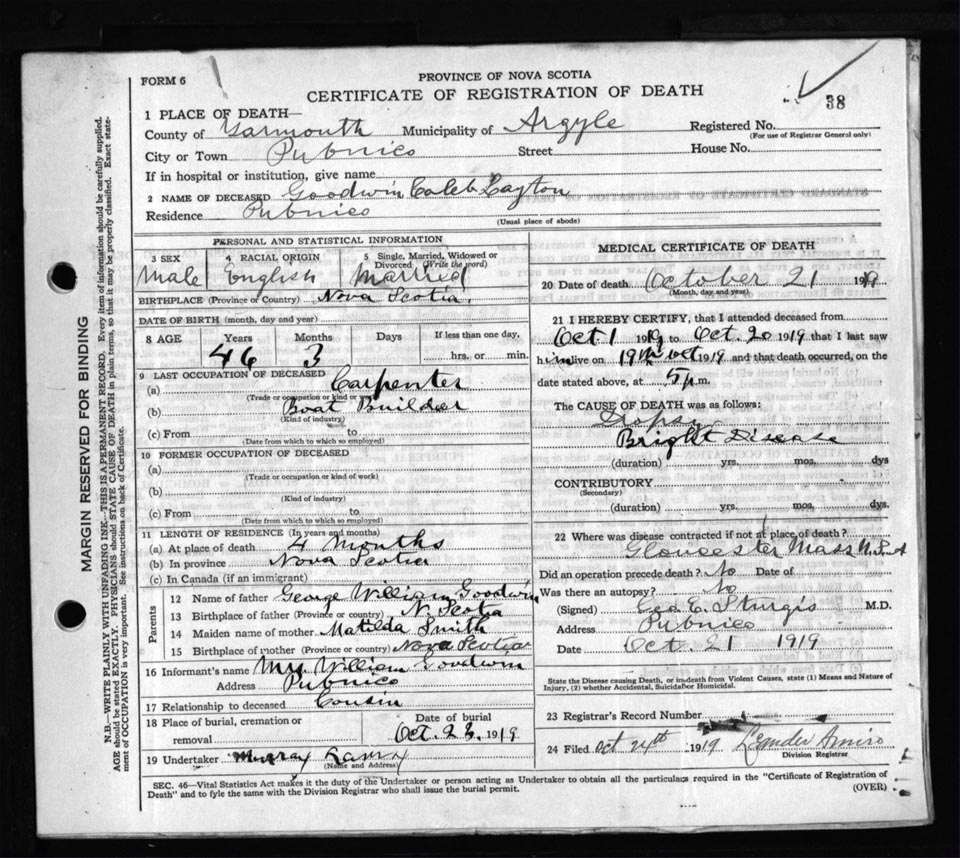 FORM 6
PROVINCE OF NOVA SCOTIA
CERTIFICATE OF REGISTRATION OF DEATH
38
1 PLACE OF DEATH—
County of Yarmouth Municipality of Argyle Registered No.
(For use of Registrar General only)
City or Town Pubnico Street House No.
If in hospital or institution, give name
2 NAME OF DECEASED Goodwin Caleb Layton
Residence Pubnico
(Usual place of abode)
MARGIN RESERVED FOR BINDING
N.B.—WRITE PLAINLY WITH UNFADING INK—THIS IS A PERMANENT RECORD. Every item of information should be carefully supplied.
AGE should be stated EXACTLY. PHYSICIANS should STATE CAUSE OF DEATH in plain terms, so that it may be properly classified. Exact state-
ment of OCCUPATION is very important. See instructions on back of Certificate.
PERSONAL AND STATISTICAL INFORMATION
3 SEX 4 RACIAL ORIGIN 5 Single, Married, Widowed or Divorced (Write the word)
Male English Married
BIRTHPLACE (Province or Country) Nova Scotia.
DATE OF BIRTH (month, day and year)
8 AGE Years Months Days If less than one day,
46 3 hrs. or min.
9 LAST OCCUPATION OF DECEASED
(a) Carpenter
(Trade or occupation or kind of work)
(b) Boat Builder
(Kind of industry)
(c) From to
(Date from which to which so employed)
10 FORMER OCCUPATION OF DECEASED
(a)
(Trade or occupation or kind of work)
(b)
(Kind of industry)
(c) From to
(Date from which to which so employed)
11 LENGTH OF RESIDENCE (In years and months)
(a) At place of death 4 Months
(b) In province Nova Scotia
(c) In Canada (if an immigrant)
Parents
12 Name of father George William Goodwin
13 Birthplace of father (Province or country) N. Scotia
14 Maiden name of mother Matilda Smith
15 Birthplace of mother (Province or country) Nova Scotia
16 Informant's name William Goodwin
Address Pubnico
17 Relationship to deceased Cousin
18 Place of burial, cremation or removal
Date of burial
Oct. 23, 1919
19 Undertaker Murray
(Name and Address)
MEDICAL CERTIFICATE OF DEATH
20 Date of death October 21 1919
(Month, day and year)
21 I HEREBY CERTIFY, that I attended deceased from
Oct 1 1919 to Oct. 20 1919 that I last saw
him alive on 19th Oct 1919 and that death occurred, on the
date stated above, at 5 p.m.
The CAUSE OF DEATH was as follows:
Dropsy
Bright Disease
(duration) yrs. mos. dys
CONTRIBUTORY
(Secondary)
(duration) yrs. mos. dys.
22 Where was disease contracted if not at place of death?
Gloucester Mass
Did an operation precede death? No Date of
Was there an autopsy? No
(Signed) Geo. E. Sturgis M.D.
Address Pubnico
Date Oct. 21 1919
State the Disease causing Death, or in death from Violent Causes, state (1) Means and Nature of
Injury, (2) whether Accidental, Suicidal or Homicidal.
23 Registrar's Record Number
24 Filed Oct 24th 1919 Leander Amiro
Division Registrar
SEC. 46—Vital Statistics Act makes it the duty of the Undertaker or person acting as Undertaker to obtain all the particulars required in the "Certificate of Registration of
Death" and to fyle the same with the Division Registrar who shall issue the burial permit. (OVER)